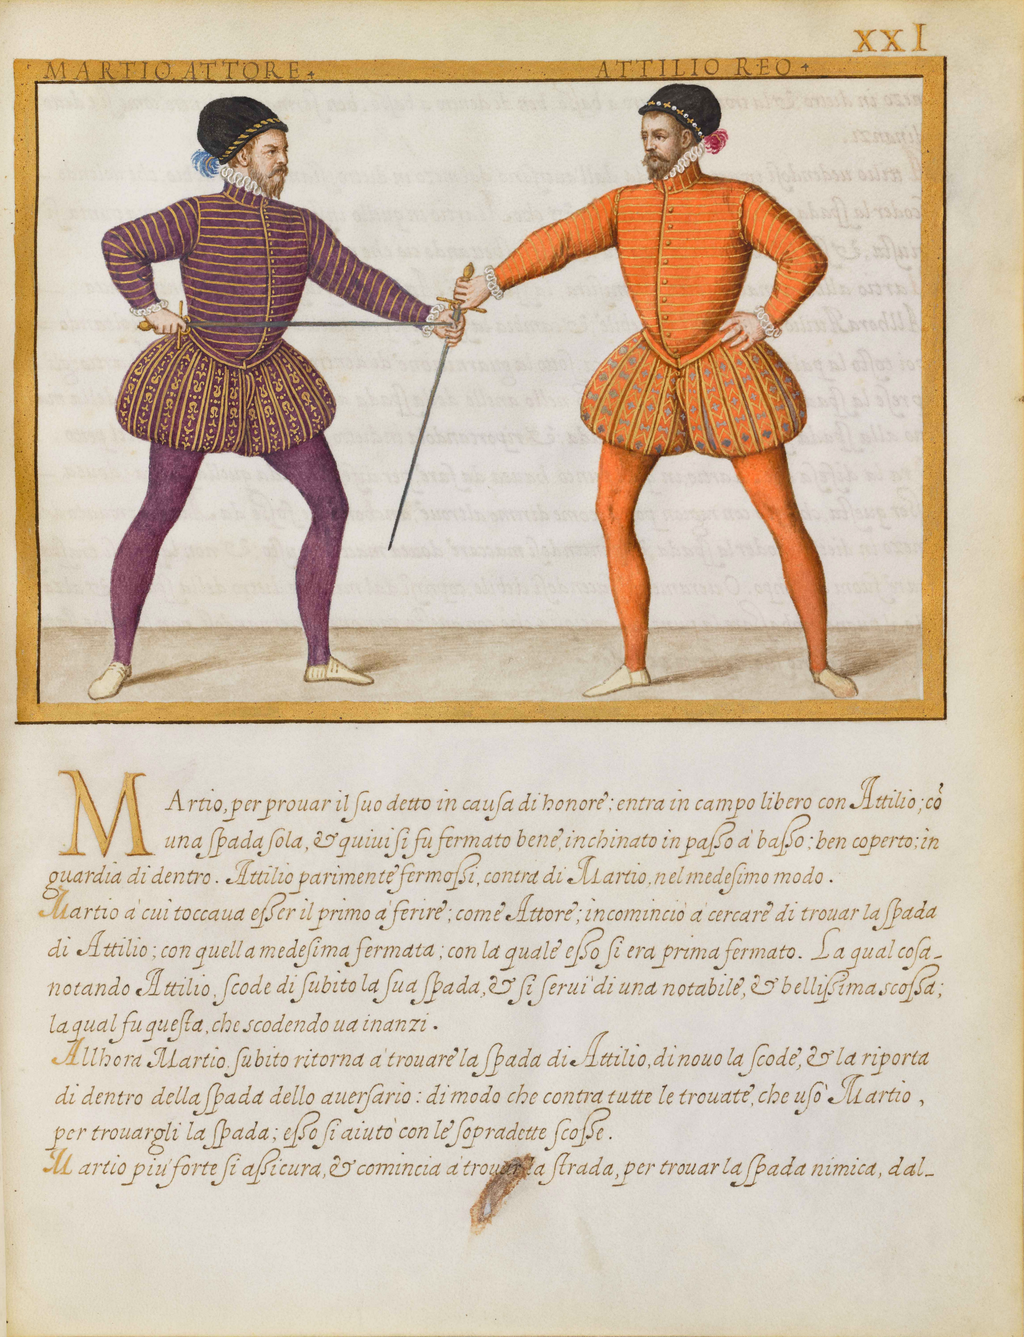 XXI
MARTIO ATTORE
ATTILIO REO
MArtio, per prouar il suo detto in causa di honore; entra in campo libero con Attilio; cō
una spada sola, & quiui si fu fermato bene, inchinato in passo à basso; ben coperto; in
guardia di dentro. Attilio parimente fermossi, contra di Martio, nel medesimo modo.
Martio à cui toccaua esser il primo à ferire; come Attore; incominciò à cercare di trouar la spada
di Attilio; con quella medesima fermata; con la quale esso si era prima fermato. La qual cosa
notando Attilio, scode di subito la sua spada, & si serui di una notabile, & bellissima scossa;
la qual fu questa, che scodendo ua inanzi.
Allhora Martio subito ritorna à trouare la spada di Attilio, di nouo la scode, & la riporta
di dentro della spada dello auersario: di modo che contra tutte le trouate, che usò Martio,
per trouargli la spada; esso si aiutò con le sopradette scosse.
Martio più forte si assicura, & comincia à trouar la strada, per trouar la spada nimica, dal_